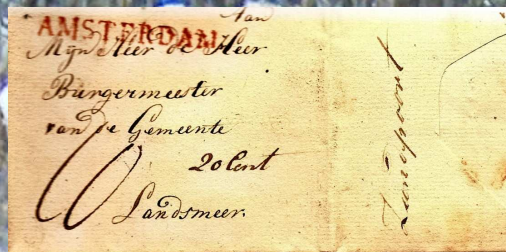 Van
AMSTERDAM
Mijn Heer de Heer
Burgermeester
van de Gemeente
20 Cent
Landsmeer.
Zuidpoort